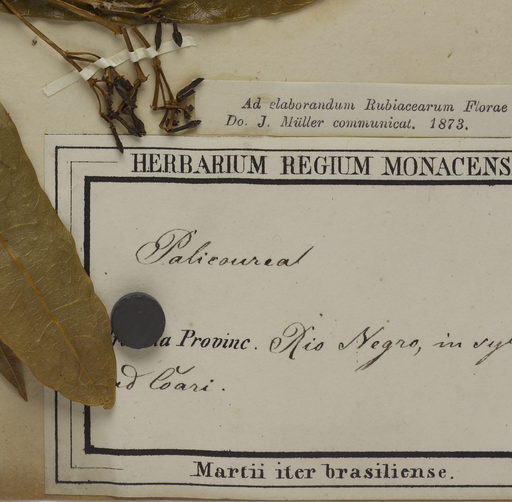 Ad elaborandum Rubiacearum Florae
Do. J. Müller communicat. 1873.
HERBARIUM REGIUM MONACENS
Palicourea
Provinc. Rio Negro, in sy
ad Coari.
Martii iter brasiliense.